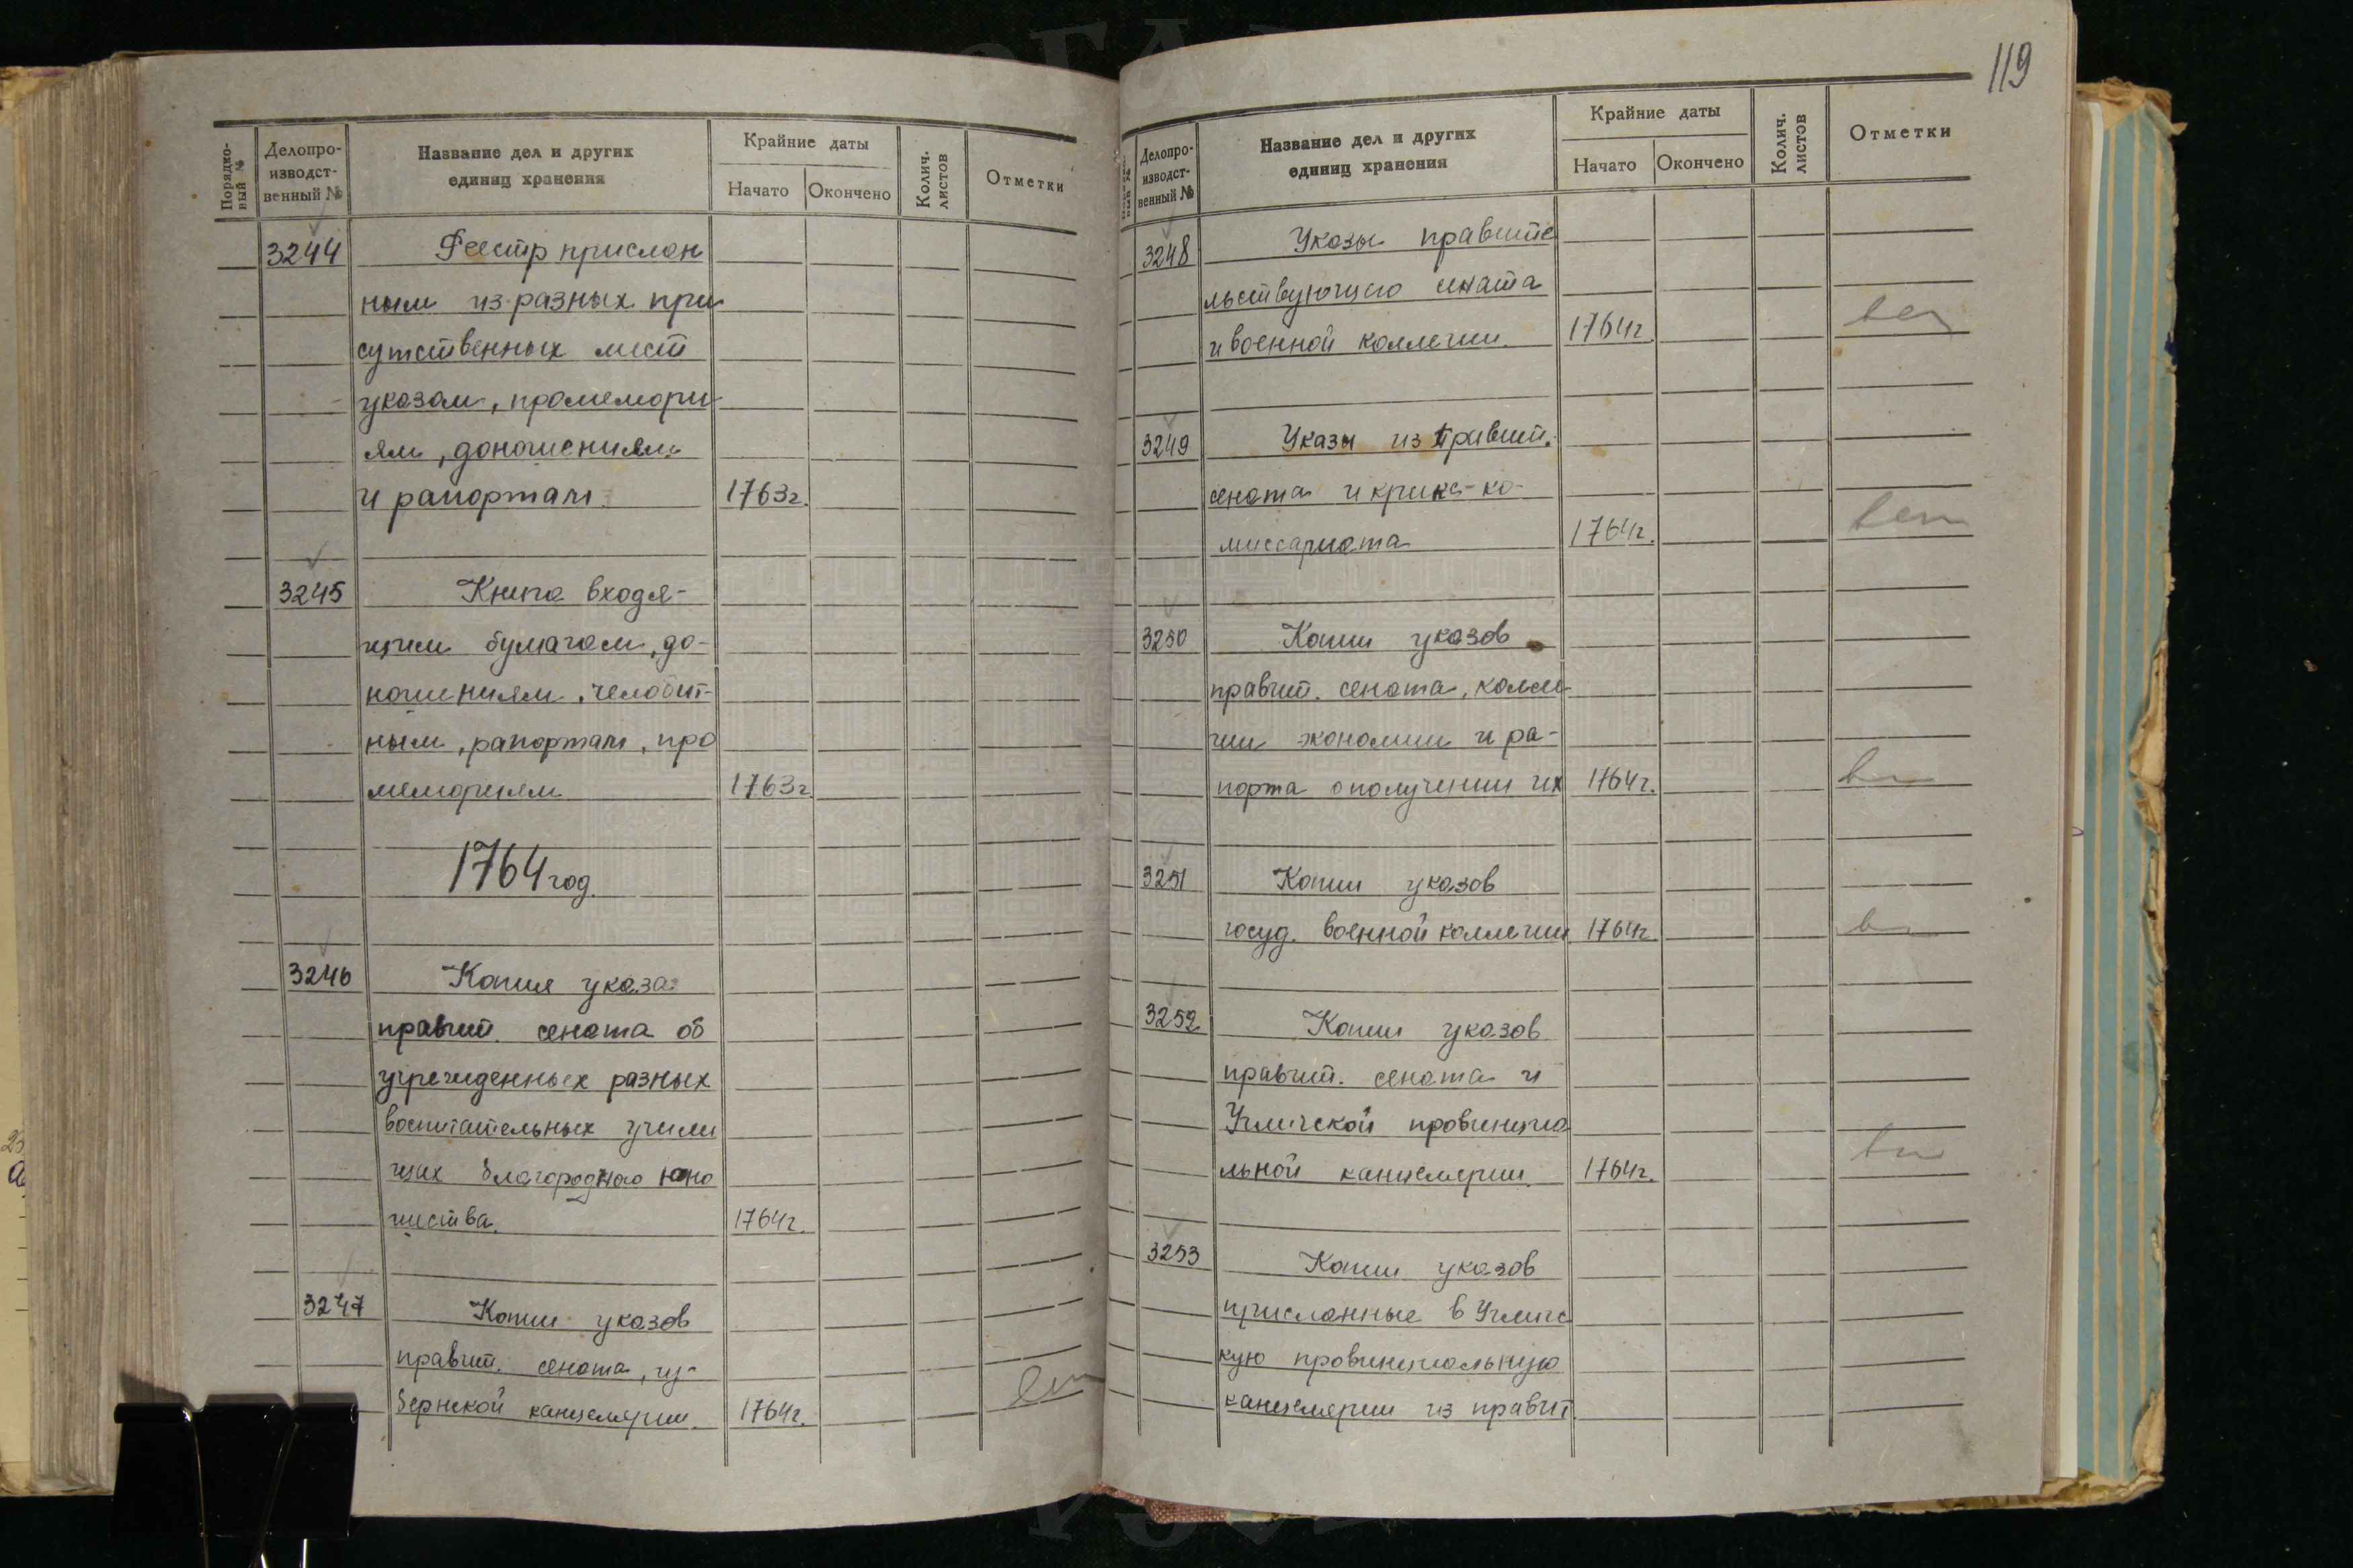 119
Порядко-
вый №
Делопро-
изводст-
венный №
Название дел и других
единиц хранения
Крайние даты
Начато
Окончено
Колич.
листов
Отметки
3244 Реестр прислан
ным из разных при
сутственных мест
указам, промемори
ям, доношениям
и рапортам. 1763г.
3245 Книга входя-
щим бумагам, до-
ношениям, челобит-
ным, рапортам, про
мемориям 1763г.
1764 год.
3246 Копия указа
правит. сената об
учрежденных разных
воспитательных учили
щах благородного юно
шества. 1764г.
3247 Копии указов
правит. сената, гу-
бернской канцелярии. 1764г.
Делопро-
изводст-
венный №
Название дел и других
единиц хранения
Крайние даты
Начато
Окончено
Колич.
листов
Отметки
3248 Указы правите
льствующего сената
и военной коллегии. 1764г.
3249 Указы из правит.
сената и крикс-ко-
миссариата 1764г.
3250 Копии указов
правит. сената, колле
гии экономии и ра-
порта о получении их 1764г.
3251 Копии указов
госуд. военной коллегии 1764г.
3252 Копии указов
правит. сената и
Угличской провинциа
льной канцелярии. 1764г.
3253 Копии указов
присланные в Угличс
кую провинциальную
канцелярии из правит